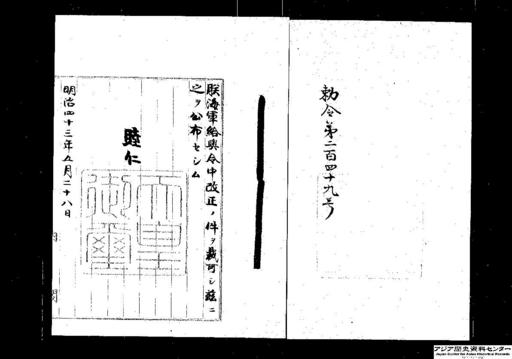 勅令第二百四十九号
朕海軍給與令中改正ノ件ヲ裁可シ茲ニ
之ヲ公布セシム
睦仁
天皇御璽
明治四十三年五月二十八日
内閣
アジア歴史資料センター
Japan Center for Asian Historical Records